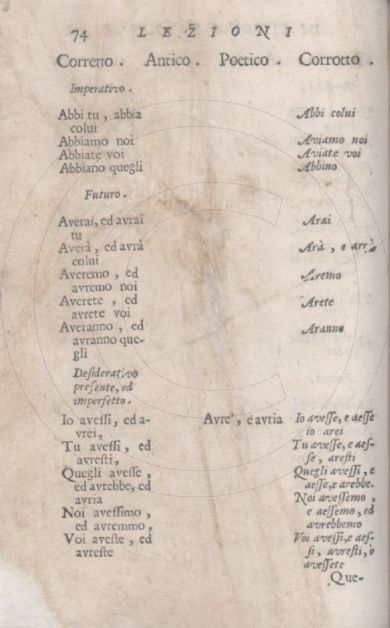 74 LEZIONI
Corretto . Antico . Poetico . Corrotto .
Imperativo .
Abbi tu , abbia Abbi colui
colui
Abbiamo noi Aviamo noi
Abbiate voi Aviate voi
Abbiano quegli Abbino
Futuro .
Averai, ed avrai Arai
tu
Averà, ed avrà Arà , e arrà
colui
Averemo , ed Aremo
avremo noi
Averete , ed Arete
avrete voi
Averanno , ed Aranno
avranno que-
gli
Desiderativo
presente, ed
imperfetto .
Io avessi, ed a- Avre', e avria Io avesse, e aesse
vrei, io arei
Tu avessi , ed Tu avesse, e aes-
avresti, se , aresti
Quegli avesse , Quegli avessi , e
ed avrebbe, ed aesse, e arebbe.
avria Noi avessemo ,
Noi avessimo , e aessemo , ed
ed avremmo , avrebbemo
Voi aveste , ed Voi avessi, e aes-
avreste si , avresti, o
avessete
Que-